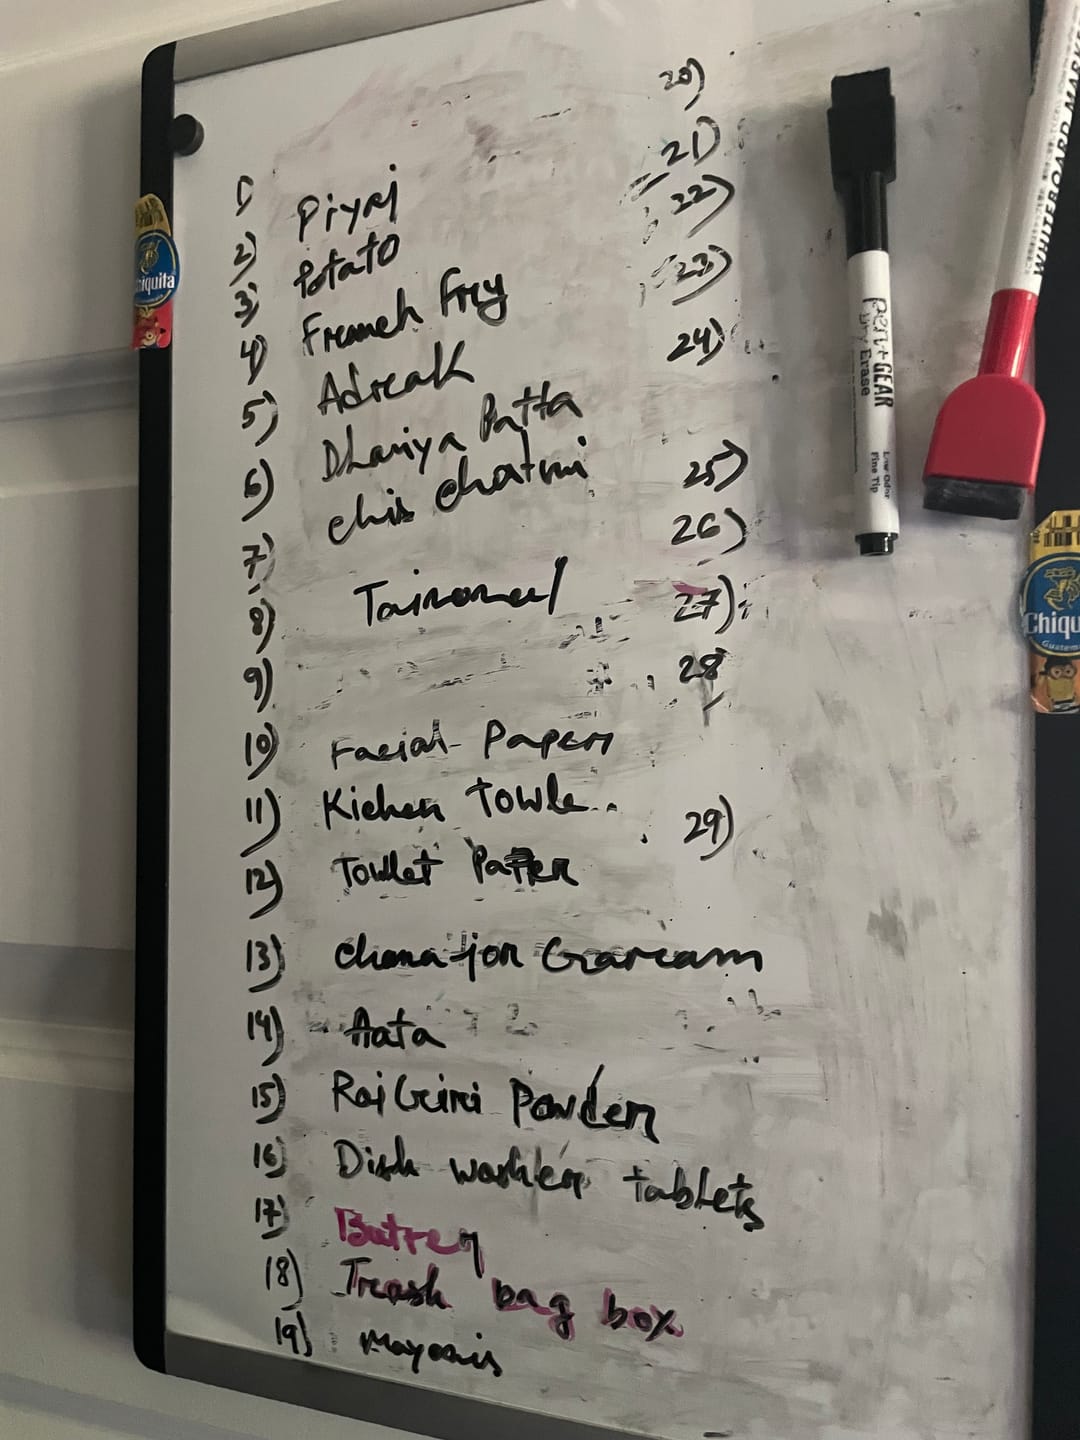 1)
Piyaj
2)
Potato
3)
French Fry
4)
Adreak
5)
Dhaniya Patta
6)
chis chatni
7)
8)
9)
10) Facial Paper
11) Kichen Towle
12) Towlet Paper
13) chana jor Gararam
14) Aata
15) RajGiri Powder
16) Dish washer tablets
17) Butter
18) Trash bag box
19) Mayonis
20)
21)
22)
23)
24)
25)
26)
27)
28
29)
Pen+GEAR
Dry Erase
Low Odor
Fine Tip
WHITEBOARD MARKE
iquita
Chiqu